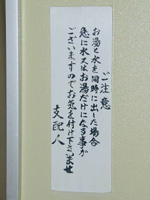 ご注意
お湯と水を同時に出した場合
急に水又はお湯だけになる事が
ございますのでお気を付け下さいませ
支配人